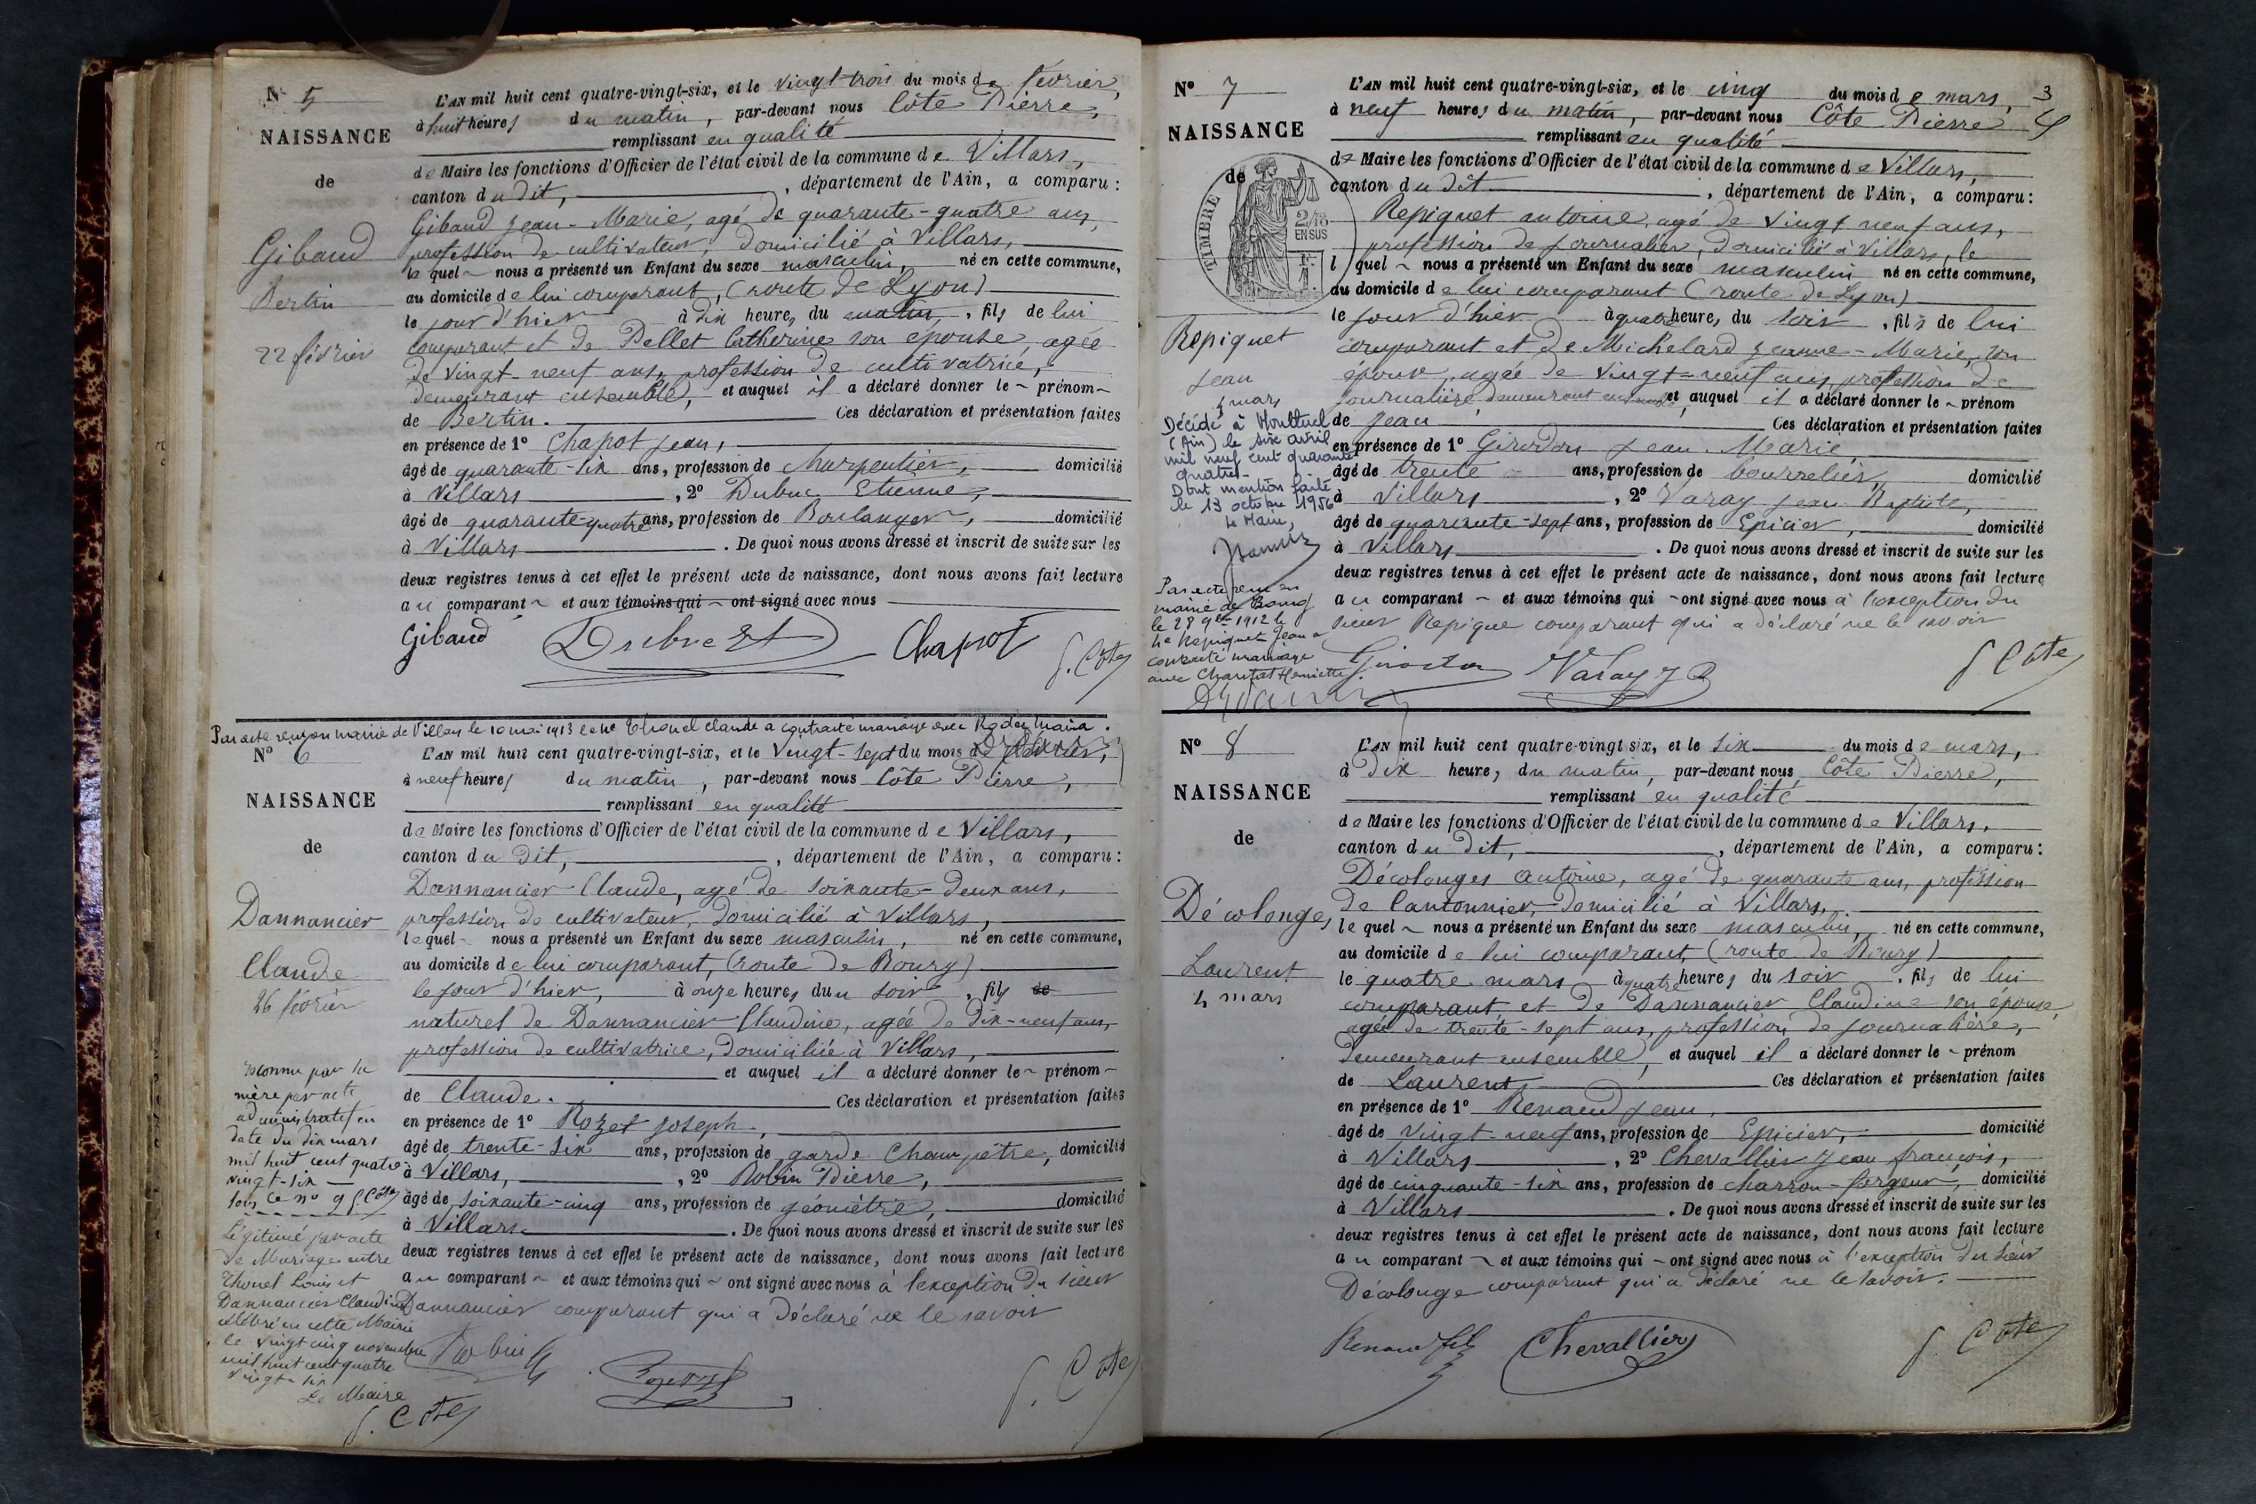 N° 5
NAISSANCE
de
Gibaud
Bertin
22 février
L'AN mil huit cent quatre-vingt-six, et le vingt-trois du mois de février,
à huit heures du matin, par-devant nous Côte Pierre,
remplissant en qualité
de Maire les fonctions d'Officier de l'état civil de la commune de Villars,
canton du dit, département de l'Ain, a comparu :
Gibaud Jean-Marie, agé de quarante-quatre ans,
profession de cultivateur, domicilié à Villars,
le quel nous a présenté un Enfant du sexe masculin, né en cette commune,
au domicile de lui comparant, (route de Lyon)
le jour d'hier à dix heures du matin, fils de lui
comparant et de Pellet Catherine son épouse, agée
de vingt-neuf ans, profession de cultivatrice,
demeurant ensemble, et auquel il a déclaré donner le prénom
de Bertin. Ces déclaration et présentation faites
en présence de 1° Chapot Jean,
âgé de quarante-six ans, profession de charpentier, domicilié
à Villars, 2° Dubuc Etienne,
âgé de quarante quatre ans, profession de Boulanger, domicilié
à Villars. De quoi nous avons dressé et inscrit de suite sur les
deux registres tenus à cet effet le présent acte de naissance, dont nous avons fait lecture
au comparant et aux témoins qui ont signé avec nous
Gibaud Dubuc Et Chapot P. Côte
Par acte reçu en mairie de Villars le 10 mai 1913 Thonel Claude a contracté mariage avec Rodet Maria.
N° 6
NAISSANCE
de
Dannancier
Claude
26 février
reconnu par sa
mère par acte
administratif en
date du dix mars
mil huit cent quatre
vingt-six
sous le n° 9 P. Côte
Légitimé par acte
de Mariage entre
Thonel Louis et
Dannancier Claudine
célébré en cette Mairie
le vingt cinq novembre
mil huit cent quatre
vingt-six
Le Maire
P. Côte
L'AN mil huit cent quatre-vingt-six, et le vingt-sept du mois de février,
à neuf heures du matin, par-devant nous Côte Pierre,
remplissant en qualité
de Maire les fonctions d'Officier de l'état civil de la commune de Villars,
canton du dit, département de l'Ain, a comparu :
Dannancier Claude, agé de soixante-deux ans,
profession de cultivateur, domicilié à Villars,
lequel nous a présenté un Enfant du sexe masculin, né en cette commune,
au domicile de lui comparant, (route de Bourg)
le jour d'hier, à onze heures du soir, fils de
naturel de Dannancier Claudine, agée de dix-neuf ans,
profession de cultivatrice, domiciliée à Villars,
et auquel il a déclaré donner le prénom
de Claude. Ces déclaration et présentation faites
en présence de 1° Rozet Joseph,
âgé de trente-six ans, profession de garde champêtre, domicilié
à Villars, 2° Robin Pierre,
âgé de soixante-cinq ans, profession de géomètre, domicilié
à Villars. De quoi nous avons dressé et inscrit de suite sur les
deux registres tenus à cet effet le présent acte de naissance, dont nous avons fait lecture
au comparant et aux témoins qui ont signé avec nous à l'exception du sieur
Dannancier comparant qui a déclaré ne le savoir
Robin P. Côte
3
N° 7
NAISSANCE
de
TIMBRE
2/10
EN SUS
Repiquet
Jean
4 mars
Décédé à Montluel
(Ain) le six avril
mil neuf cent quarante
quatre
Dont mention faite
le 13 octobre 1956
Le Maire,
Par acte reçu en
mairie de Bourg
le 28 9bre 1912 le
Repiquet Jean a
contracté mariage
avec Henriette
L'AN mil huit cent quatre-vingt-six, et le cinq du mois de mars,
à neuf heures du matin, par-devant nous Côte Pierre
remplissant en qualité
de Maire les fonctions d'Officier de l'état civil de la commune de Villars,
canton du dit, département de l'Ain, a comparu :
Repiquet antoine, agé de vingt neuf ans,
profession de journalier, domicilié à Villars, le
l quel nous a présenté un Enfant du sexe masculin né en cette commune,
au domicile de lui comparant (route de Lyon)
le jour d'hier à quatre heures du soir, fils de lui
comparant et de Michelard Jeanne-Marie, son
épouse, agée de vingt-neuf ans, profession de
journalière, demeurant ensemble et auquel il a déclaré donner le prénom
de Jean Ces déclaration et présentation faites
en présence de 1° Girodon Jean-Marie
âgé de trente ans, profession de bourrelier domicilié
à Villars, 2° Varay Jean-Baptiste,
âgé de quarante-sept ans, profession de Epicier, domicilié
à Villars. De quoi nous avons dressé et inscrit de suite sur les
deux registres tenus à cet effet le présent acte de naissance, dont nous avons fait lecture
au comparant et aux témoins qui ont signé avec nous à l'exception du
sieur Repique comparant qui a déclaré ne le savoir
Girodon Varay J B P. Côte
N° 8
NAISSANCE
de
Décolonges
Laurent
4 mars
L'AN mil huit cent quatre-vingt six, et le six du mois de mars,
à dix heures du matin, par-devant nous Côte Pierre,
remplissant en qualité
de Maire les fonctions d'Officier de l'état civil de la commune de Villars,
canton du dit, département de l'Ain, a comparu :
Décolonges Antoine, agé de quarante ans, profession
de Cantonnier, domicilié à Villars,
le quel nous a présenté un Enfant du sexe masculin, né en cette commune,
au domicile de lui comparant, (route de Bourg)
le quatre mars à quatre heures du soir, fils de lui
comparant et de Dannancier Claudine son épouse,
agée de trente-sept ans, profession de journalière,
demeurant ensemble, et auquel il a déclaré donner le prénom
de Laurent, Ces déclaration et présentation faites
en présence de 1° Renaud Jean,
âgé de vingt-neuf ans, profession de Epicier, domicilié
à Villars, 2° Chevallier Jean françois,
âgé de cinquante-six ans, profession de charron-forgeur, domicilié
à Villars. De quoi nous avons dressé et inscrit de suite sur les
deux registres tenus à cet effet le présent acte de naissance, dont nous avons fait lecture
au comparant et aux témoins qui ont signé avec nous à l'exception du sieur
Décolonge comparant qui a déclaré ne le savoir.
Renaud fils Chevallier P. Côte